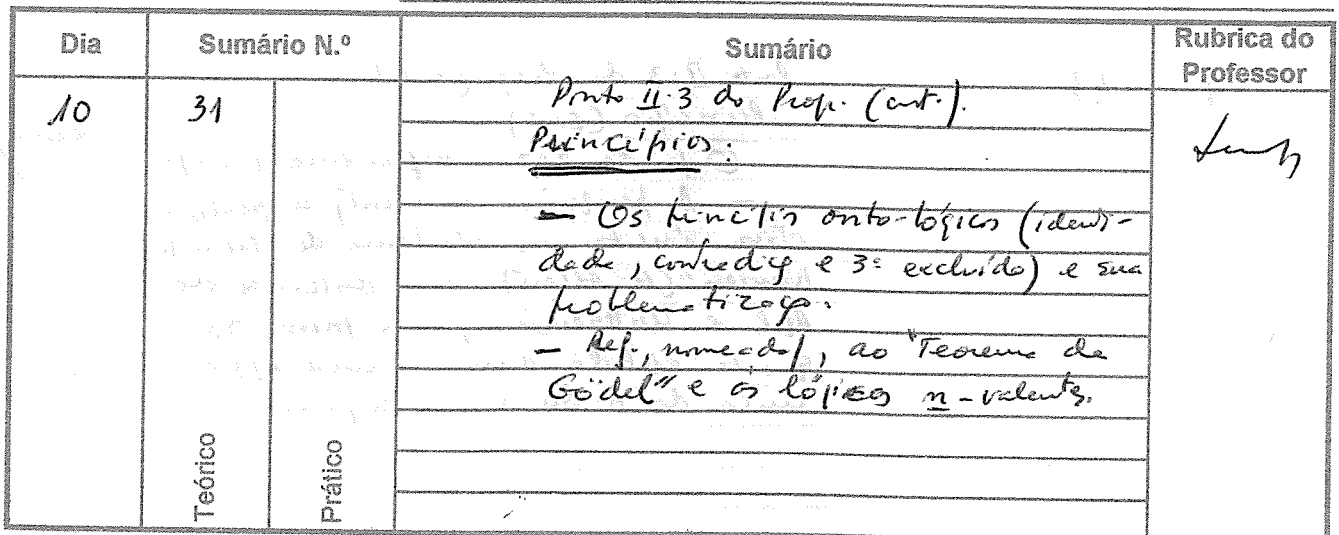 Dia Sumário N.º Sumário Rubrica do Professor
10 31 Ponto II.3 do Prog. (cont.).
Princípios:
— Os princípios onto-lógicos (identi-
dade, contradição e 3º excluído) e sua
problematização.
— Ref., nomeada/, ao "Teorema de
Gödel" e às lógicas n-valentes.
Teórico Prático